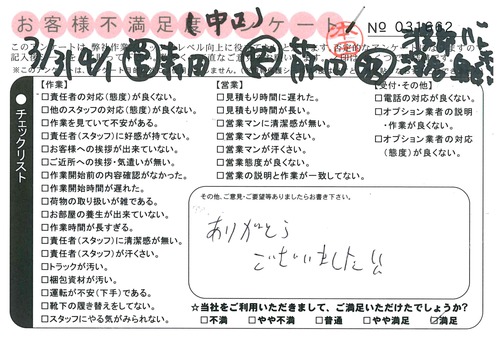 お客様不満足度アンケート
(中区)
№ 031662
このアンケートは、弊社作業
3/31 4/1
チェックリスト
【作業】
□責任者の対応(態度)が良くない。
□他のスタッフの対応(態度)が良くない。
□作業を見ていて不安がある。
□責任者(スタッフ)に好感が持てない。
□お客様への挨拶が出来ていない。
□ご近所への挨拶・気遣いが無い。
□作業開始前の内容確認がなかった。
□作業開始時間が遅れた。
□荷物の取り扱いが雑である。
□お部屋の養生が出来ていない。
□作業時間が長すぎる。
□責任者(スタッフ)に清潔感が無い。
□責任者(スタッフ)が汗くさい。
□トラックが汚い。
□梱包資材が汚い。
□運転が不安(下手)である。
□靴下の履き替えをしてない。
□スタッフにやる気がみられない。
【営業】
□見積もり時間が遅れた。
□見積もり時間が長い。
□営業マンに清潔感が無い。
□営業マンが煙草くさい。
□営業マンが汗くさい。
□営業態度が良くない。
□営業の説明と作業が一致してない。
【受付・その他】
□電話の対応が良くない。
□オプション業者の説明
・作業が良くない。
□オプション業者の対応
(態度)が良くない。
その他、ご意見・ご要望等ありましたらお書き下さい。
ありがとう
ございました!!
☆当社をご利用いただきまして、ご満足いただけたでしょうか?
□不満 □やや不満 □普通 □やや満足 ☑満足